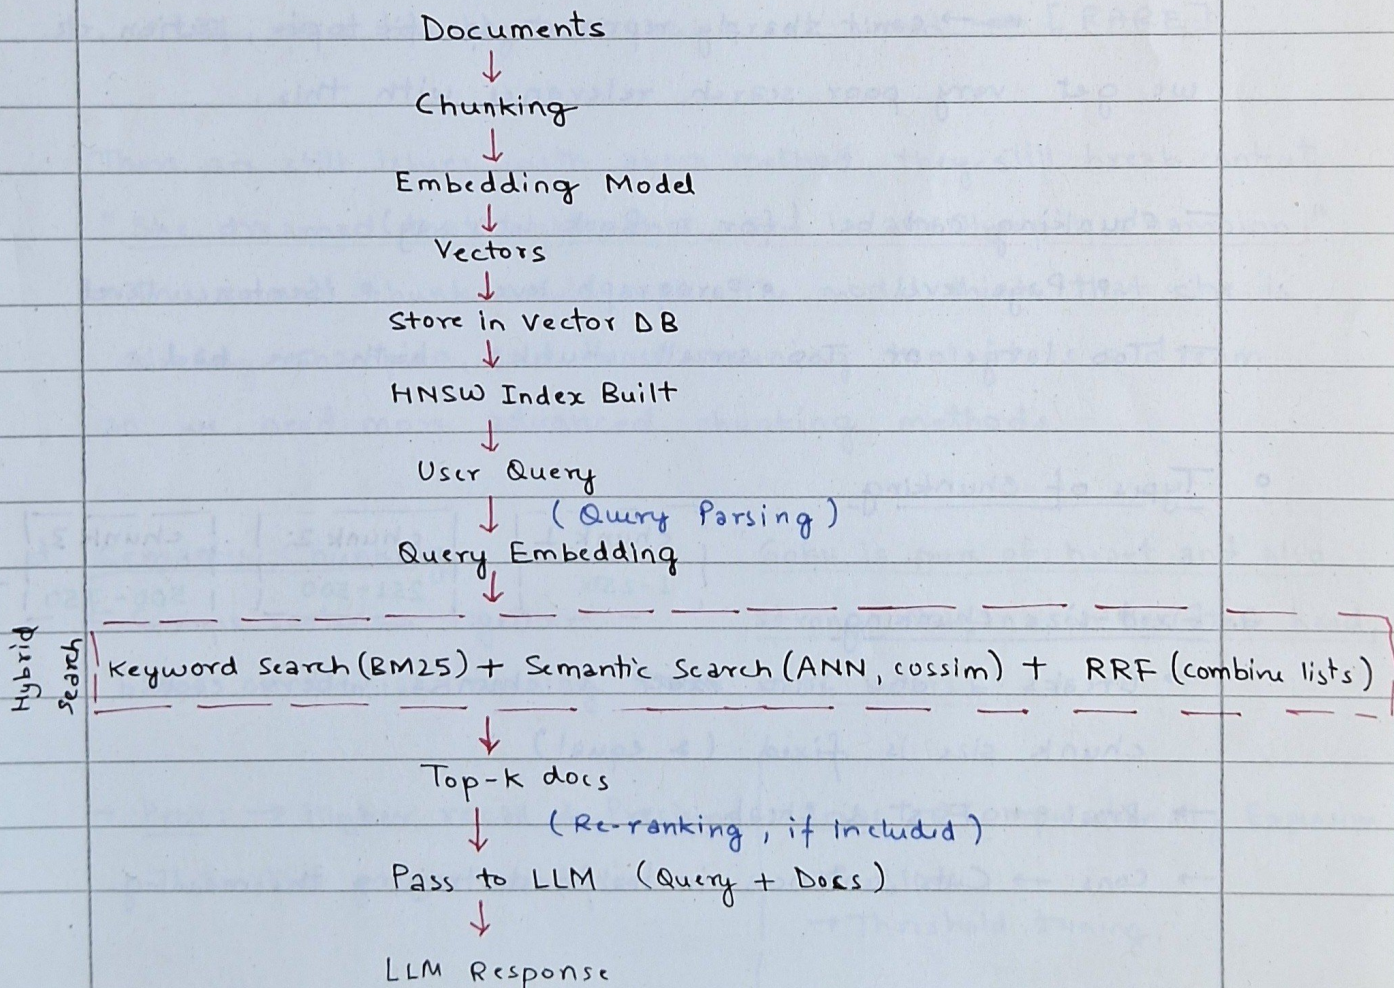 Documents
↓
Chunking
↓
Embedding Model
↓
Vectors
↓
Store in Vector DB
↓
HNSW Index Built
↓
User Query
↓ (Query Parsing)
Query Embedding
↓
Hybrid search
Keyword Search (BM25) + Semantic Search (ANN, cossim) + RRF (combine lists)
↓
Top-K docs
↓ (Re-ranking, if included)
Pass to LLM (Query + Docs)
↓
LLM Response